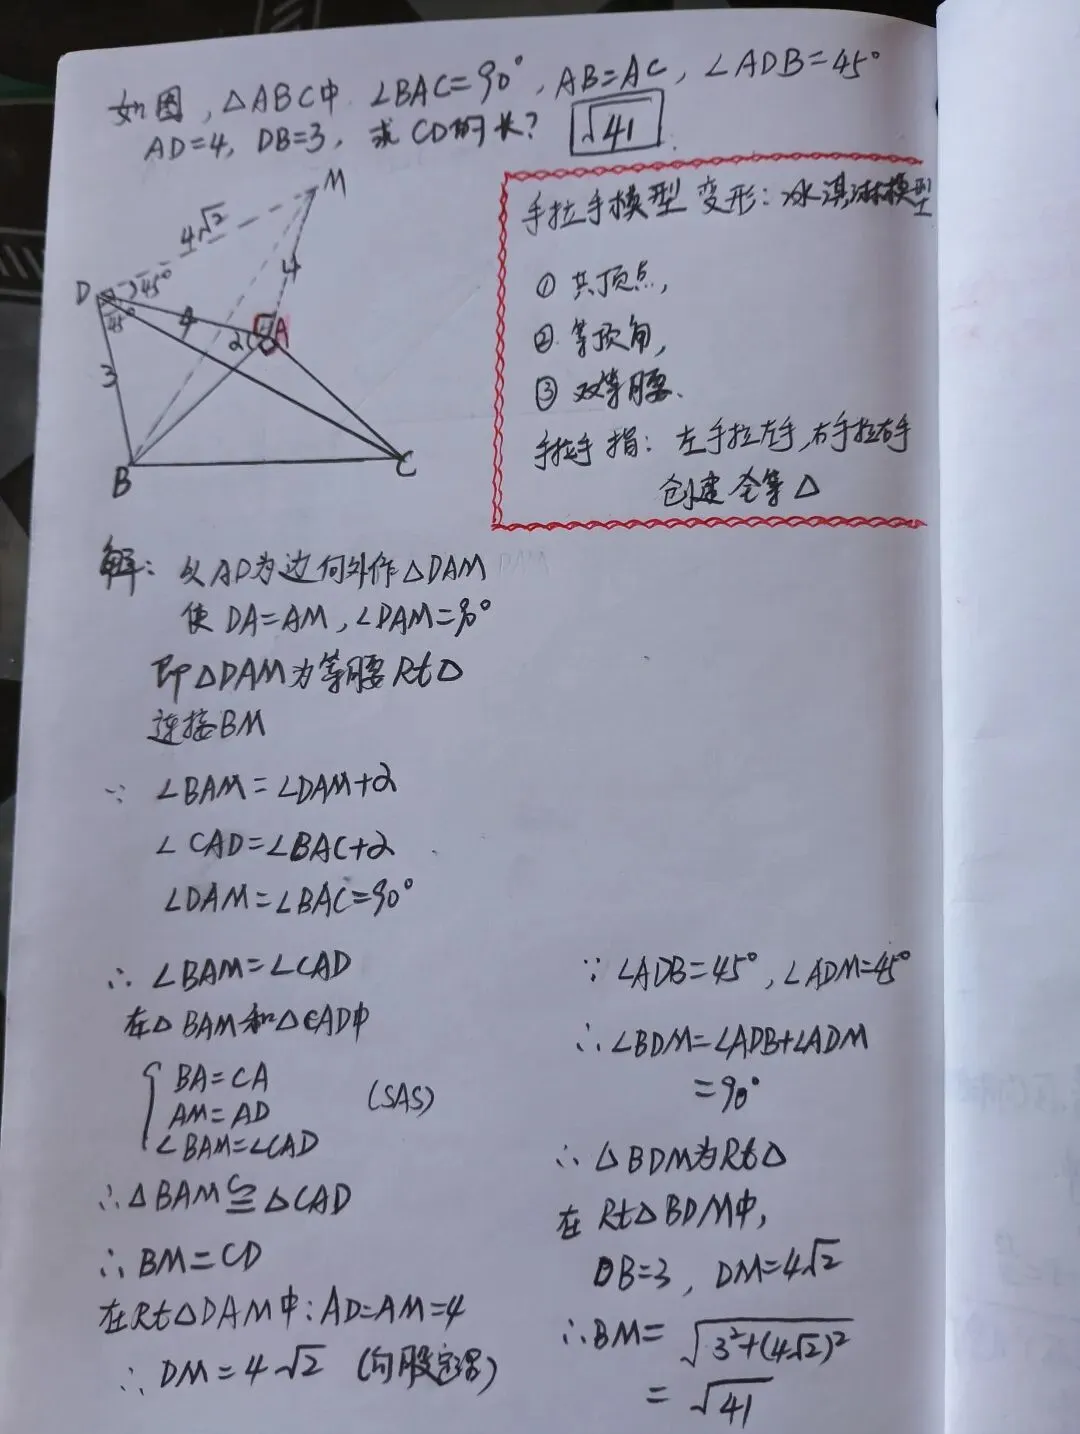 如图,△ABC中 ∠BAC=90°,AB=AC,∠ADB=45°
AD=4,DB=3,求CD的长? √41
M
4√2
D
45°
45°
4
4
α
A
3
B
C
手拉手模型 变形:冰淇淋模型
① 共顶点,
② 等顶角,
③ 双等腰.
手拉手 指:左手拉左手,右手拉右手
创建全等△
解:以AD为边向外作△DAM
使 DA=AM,∠DAM=90°
即△DAM为等腰Rt△
连接BM
∵ ∠BAM=∠DAM+α
∠CAD=∠BAC+α
∠DAM=∠BAC=90°
∴ ∠BAM=∠CAD
在△BAM和△CAD中
BA=CA
AM=AD
∠BAM=∠CAD
(SAS)
∴△BAM≌△CAD
∴BM=CD
在Rt△DAM中:AD=AM=4
∴DM=4√2 (勾股定理)
∵∠ADB=45°,∠ADM=45°
∴∠BDM=∠ADB+∠ADM
=90°
∴△BDM为Rt△
在 Rt△BDM中,
DB=3,DM=4√2
∴BM=√3²+(4√2)²
=√41